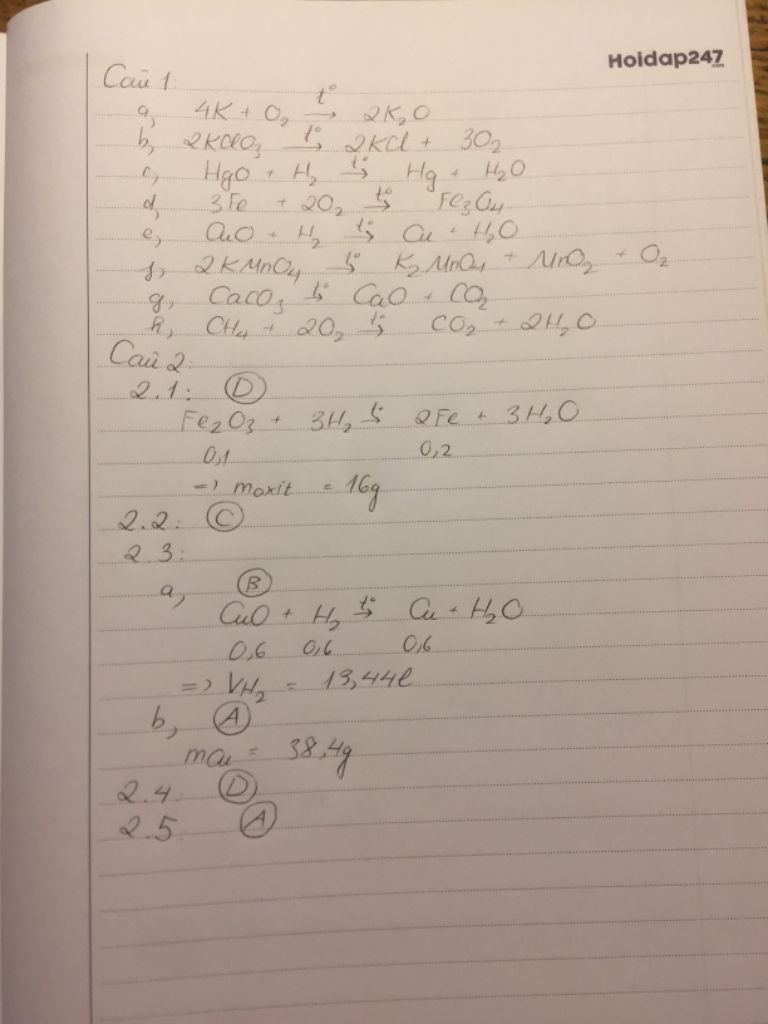 Hoidap247.com
Câu 1:
a, 4K + O₂ t° → 2K₂O
b, 2KClO₃ t° → 2KCl + 3O₂
c, HgO + H₂ t° → Hg + H₂O
d, 3Fe + 2O₂ t° → Fe₃O₄
e, CuO + H₂ t° → Cu + H₂O
f, 2KMnO₄ t° → K₂MnO₄ + MnO₂ + O₂
g, CaCO₃ t° → CaO + CO₂
h, CH₄ + 2O₂ t° → CO₂ + 2H₂O
Câu 2:
2.1: D
Fe₂O₃ + 3H₂ t° → 2Fe + 3H₂O
0,1 0,2
=> moxit = 16g
2.2: C
2.3:
a, B
CuO + H₂ t° → Cu + H₂O
0,6 0,6 0,6
=> VH₂ = 13,44l
b, A
mCu = 38,4g
2.4: D
2.5: A